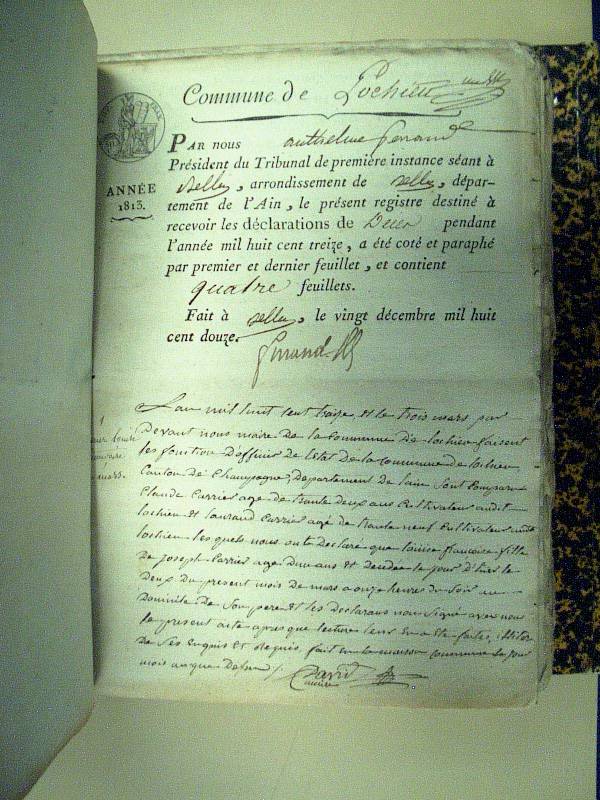 Commune de Lochieu
PAR nous anthelme ferrand
Président du Tribunal de première instance séant à
Belley, arrondissement de Belley, dépar-
tement de l'Ain, le présent registre destiné à
recevoir les déclarations de Décès pendant
l'année mil huit cent treize, a été coté et paraphé
par premier et dernier feuillet, et contient
quatre feuillets.
Fait à Belley, le vingt décembre mil huit
cent douze.
ferrand
ANNÉE
1813.
1
mars.
L'an mil huit cent traize, et le trois mars par
Devant nous maire De la Commune De lochieu faisent
les fonction D'officier De l'Etat De la commune de lochieu
Canton De Champagne, Departement de l'ain sont comparu
Claude Carrier age De trante Deux ans Cultivateur audit
lochieu et laurand Carrier agé De trante neuf Cultivateur audit
lochieu les quels nous ont Declaré que louise francoise fille
De joseph Carrier age Dun ans et Decedee le jour D'hier le
Deux Du present mois De mars a onze heures Du Soir au
Domicile De Son pere et les Declarans nous Signé avec nous
le present acte apres que lecture leur en a ete faite,
De Ses Enquis et fait en la maison commune le jour
mois an que Dessus
David
maire